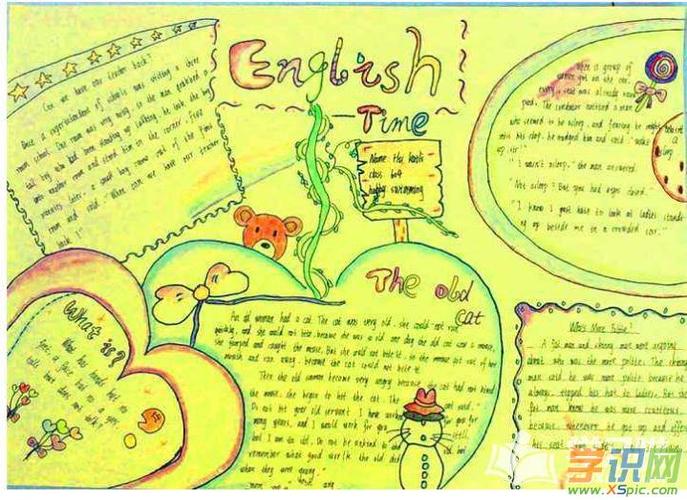 English
Time
Can we have our teacher back?
Once a superintendent of schools was visiting a three
room school. One room was very noisy, so the man grabbed a
tall boy who had been standing up talking, he took the boy
into another room and stood him in the corner. Five
minutes later, a small boy came out of the first
room and said: "When can we have our teacher
back?"
Name:
class
happy swimming
When a group of
women got on the car,
every seat was already
The conductor noticed a man
who seemed to be asleep, and fearing he might
his stop, he nudged him and said: "wake
up sir!"
"I wasn't asleep," the man answered.
Not asleep? But you had eyes closed."
"I know I just hate to look at ladies stand-
ing up beside me in a crowded car."
What is?
What has hands but no
feet, a face but no
eyes,
tells but does not talk?
The old
cat
An old woman had a cat. The cat was very old, she could not run
quickly, and she could not bite, because she was so old. One day the old cat saw a mouse,
she jumped and caught the mouse. But she could not bite it, so the mouse got out of her
mouth and ran away, because the cat could not bite it.
Then the old woman became very angry because the cat had not killed
the mouse, she began to hit the cat. The cat said,
Do not hit your old servant. I have worked for you for
many years, and I would work for you still,
but I am too old. Do not be unkind to
remember what good work the old did
when they were young."
Who's More Polite?
A fat man and a skinny man were arguing
about who was the more polite. The skinny
man said he was more polite because he
always tipped his hat to ladies. But the
fat man knew he was more courteous
because, whenever he got up and offered
his seat,
学识网
www.XSpic.com